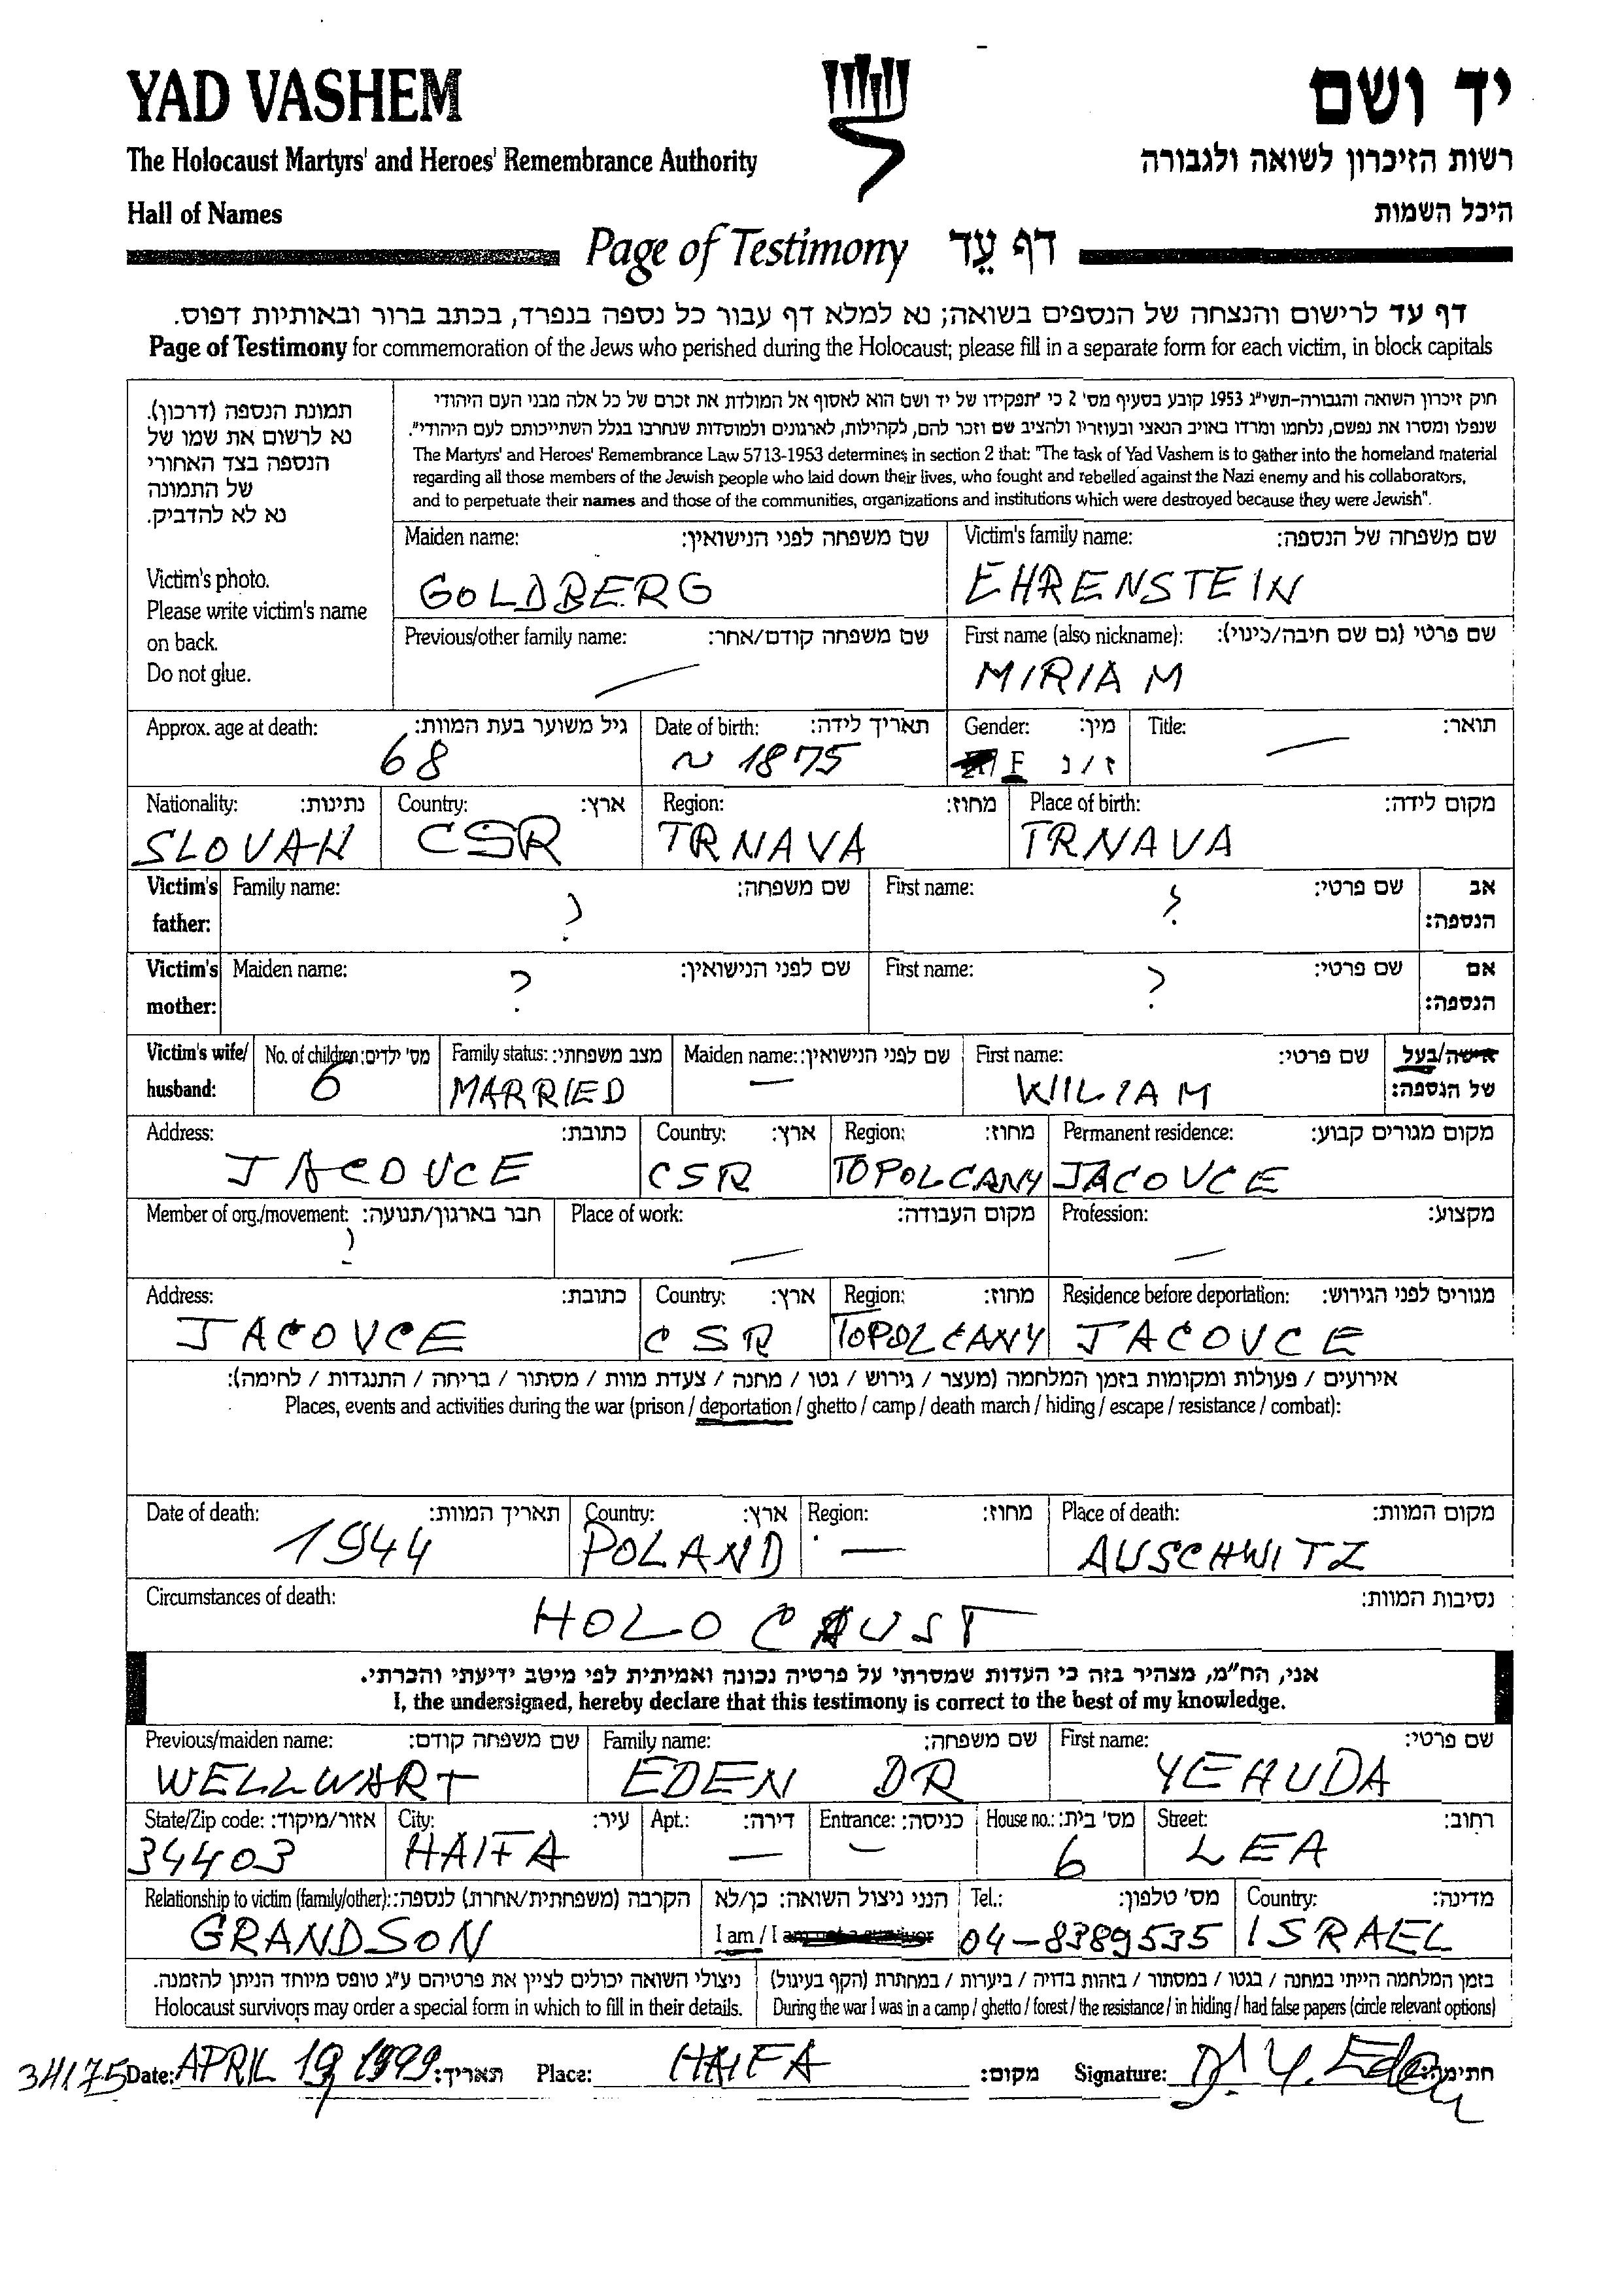 YAD VASHEM
יד ושם
The Holocaust Martyrs' and Heroes' Remembrance Authority
רשות הזיכרון לשואה ולגבורה
Hall of Names
היכל השמות
Page of Testimony דף עֵד
דף עד לרישום והנצחה של הנספים בשואה; נא למלא דף עבור כל נספה בנפרד, בכתב ברור ובאותיות דפוס.
Page of Testimony for commemoration of the Jews who perished during the Holocaust; please fill in a separate form for each victim, in block capitals
תמונת הנספה (דרכון).
נא לרשום את שמו של
הנספה בצד האחורי
של התמונה
נא לא להדביק.
Victim's photo.
Please write victim's name
on back.
Do not glue.
חוק זיכרון השואה והגבורה-תשי"ג 1953 קובע בסעיף מס' 2 כי "תפקידו של יד ושם הוא לאסוף אל המולדת את זכרם של כל אלה מבני העם היהודי
שנפלו ומסרו את נפשם, נלחמו ומרדו באויב הנאצי ובעוזריו ולהציב שם וזכר להם, לקהילות, לארגונים ולמוסדות שנחרבו בגלל השתייכותם לעם היהודי".
The Martyrs' and Heroes' Remembrance Law 5713-1953 determines in section 2 that: "The task of Yad Vashem is to gather into the homeland material
regarding all those members of the Jewish people who laid down their lives, who fought and rebelled against the Nazi enemy and his collaborators,
and to perpetuate their names and those of the communities, organizations and institutions which were destroyed because they were Jewish".
Maiden name: שם משפחה לפני הנישואין: Victim's family name: שם משפחה של הנספה:
GOLDBERG EHRENSTEIN
Previous/other family name: שם משפחה קודם/אחר: First name (also nickname): שם פרטי (גם שם חיבה/כינוי):
— MIRIAM
Approx. age at death: גיל משוער בעת המוות: Date of birth: תאריך לידה: Gender: מין: Title: תואר:
68 ~ 1875 F ז / נ —
Nationality: נתינות: Country: ארץ: Region: מחוז: Place of birth: מקום לידה:
SLOVAK CSR TRNAVA TRNAVA
Victim's father: Family name: שם משפחה: First name: שם פרטי: אב הנספה:
? ?
Victim's mother: Maiden name: שם לפני הנישואין: First name: שם פרטי: אם הנספה:
? ?
Victim's wife/ husband: No. of children: מס' ילדים: Family status: מצב משפחתי: Maiden name: שם לפני הנישואין: First name: שם פרטי: אישה/בעל של הנספה:
6 MARRIED — WILIAM
Address: כתובת: Country: ארץ: Region: מחוז: Permanent residence: מקום מגורים קבוע:
JACOVCE CSR TOPOLCANY JACOVCE
Member of org./movement: חבר בארגון/תנועה: Place of work: מקום העבודה: Profession: מקצוע:
? — —
Address: כתובת: Country: ארץ: Region: מחוז: Residence before deportation: מגורים לפני הגירוש:
JACOVCE CSR TOPOLCANY JACOVCE
אירועים / פעולות ומקומות בזמן המלחמה (מעצר / גירוש / גטו / מחנה / צעדת מוות / מסתור / בריחה / התנגדות / לחימה):
Places, events and activities during the war (prison / deportation / ghetto / camp / death march / hiding / escape / resistance / combat):
Date of death: תאריך המוות: Country: ארץ: Region: מחוז: Place of death: מקום המוות:
1944 POLAND — AUSCHWITZ
Circumstances of death: נסיבות המוות:
HOLOCAUST
אני, הח"מ, מצהיר בזה כי העדות שמסרתי על פרטיה נכונה ואמיתית לפי מיטב ידיעתי והכרתי.
I, the undersigned, hereby declare that this testimony is correct to the best of my knowledge.
Previous/maiden name: שם משפחה קודם: Family name: שם משפחה: First name: שם פרטי:
WELLWART EDEN DR YEHUDA
State/Zip code: אזור/מיקוד: City: עיר: Apt.: דירה: Entrance: כניסה: House no.: מס' בית: Street: רחוב:
34403 HAIFA — — 6 LEA
Relationship to victim (family/other): הקרבה (משפחתית/אחרת) לנספה: הנני ניצול השואה: כן/לא Tel.: מס' טלפון: Country: מדינה:
GRANDSON I am / I am not a survivor 04-8389535 ISRAEL
ניצולי השואה יכולים לציין את פרטיהם ע"ג טופס מיוחד הניתן להזמנה. בזמן המלחמה הייתי במחנה / בגטו / במסתור / בזהות בדויה / ביערות / במחתרת (הקף בעיגול)
Holocaust survivors may order a special form in which to fill in their details. During the war I was in a camp / ghetto / forest / the resistance / in hiding / had false papers (circle relevant options)
34175 Date: APRIL 19 1999 תאריך: Place: HAIFA מקום: Signature: Dr Y. Eden חתימה: